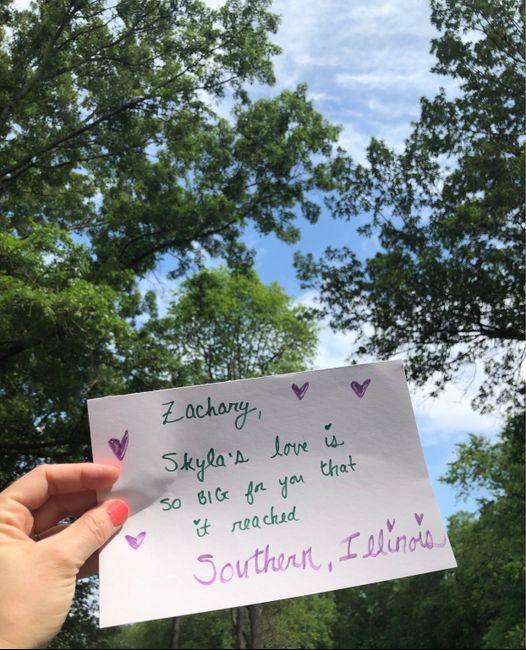 Zachary,
Skyla's love is
so BIG for you that
it reached
Southern, Illinois